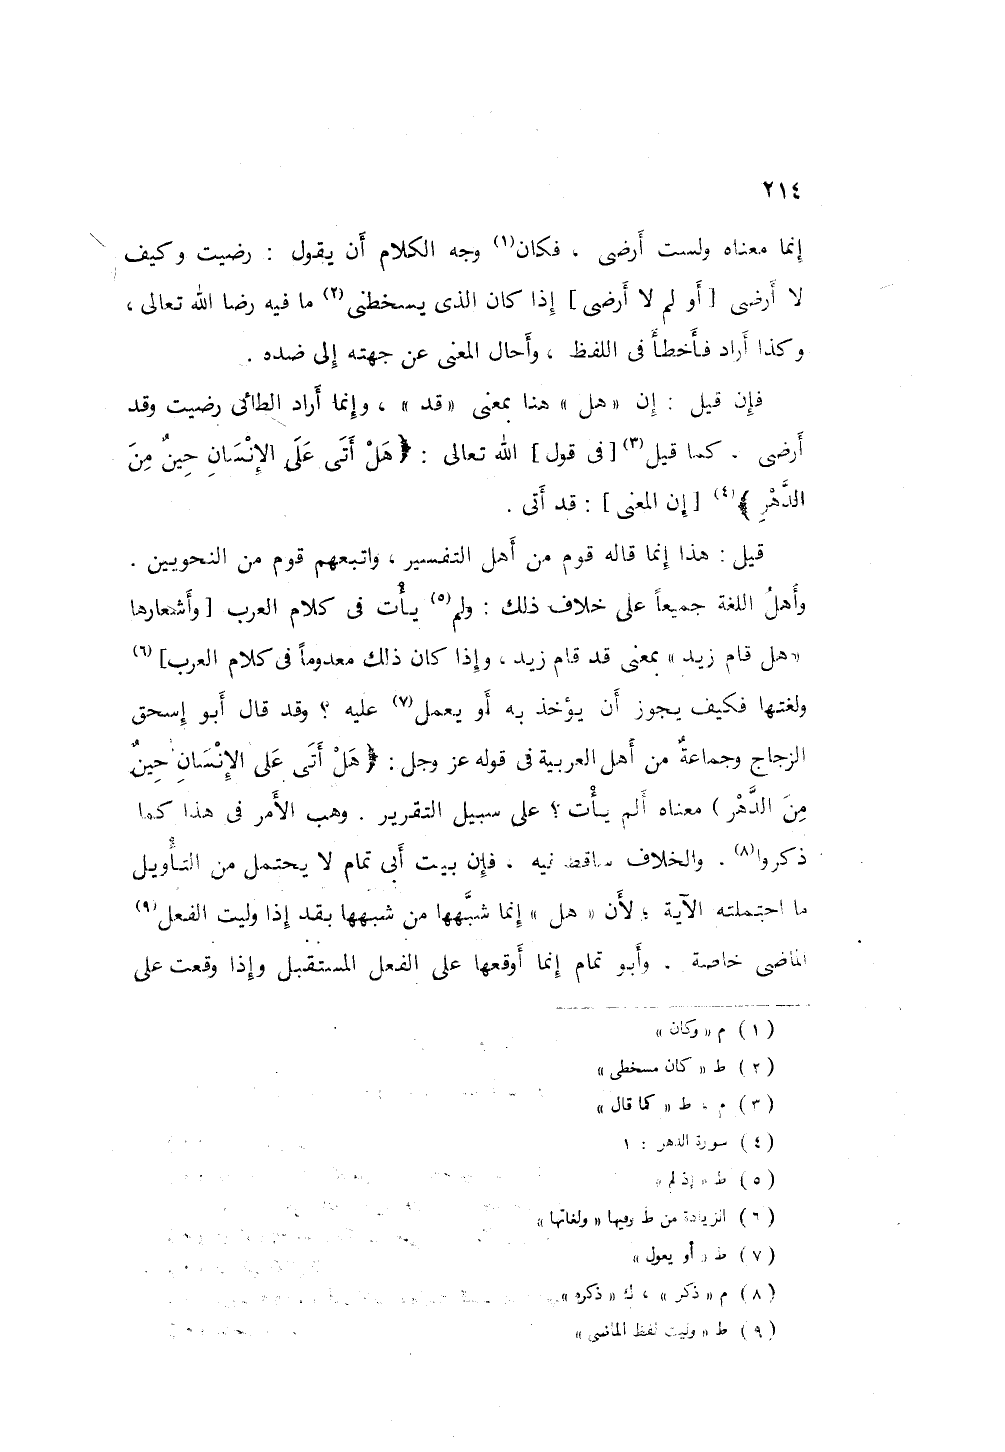 ٢١٤
إنما معناه ولست أرضى ، فكان(١) وجه الكلام أن يقول : رضيت وكيف
لا أرضى [ أو لم لا أرضى ] إذا كان الذى يسخطنى(٢) ما فيه رضا الله تعالى ،
وكذا أراد فأخطأ فى اللفظ ، وأحال المعنى عن جهته إلى ضده .
فإن قيل : إن «هل» هنا بمعنى «قد» ، وإنما أراد الطائى رضيت وقد
أرضى . كما قيل(٣) [ فى قول ] الله تعالى : ﴿ هَلْ أَتَى عَلَى الإِنْسَانِ حِينٌ مِنَ
الدَّهْرِ ﴾(٤) [ إن المعنى ] : قد أتى .
قيل : هذا إنما قاله قوم من أهل التفسير ، واتبعهم قوم من النحويين .
وأهلُ اللغة جميعاً على خلاف ذلك : ولم(٥) يأْت فى كلام العرب [ وأشعارها
«هل قام زيد» بمعنى قد قام زيد ، وإذا كان ذلك معدوماً فى كلام العرب](٦)
ولغتها فكيف يجوز أن يؤخذ به أو يعمل(٧) عليه ؟ وقد قال أبو إسحق
الزجاج وجماعةٌ من أهل العربية فى قوله عز وجل : ﴿ هَلْ أَتَى عَلَى الإِنْسَانِ حِينٌ
مِنَ الدَّهْرِ ) معناه ألم يأْت ؟ على سبيل التقرير . وهب الأمر فى هذا كما
ذكروا(٨) . والخلاف ساقط فيه ، فإن بيت أبى تمام لا يحتمل من التأْويل
ما احتملته الآية ؛ لأن « هل » إنما شبَّهها من شبهها بقد إذا وليت الفعل(٩)
الماضى خاصة . وأبو تمام إنما أوقعها على الفعل المستقبل وإذا وقعت على
(١) م « وكان »
(٢) ط « كان مسخطى »
(٣) م ، ط « كما قال »
(٤) سورة الدهر : ١
(٥) ط « إذ لم »
(٦) الزيادة من ط وفيها « ولغاتها »
(٧) ط « أو يعول »
(٨) م « ذكر » ، ك « ذكره »
(٩) ط « وليت لفظ الماضى »